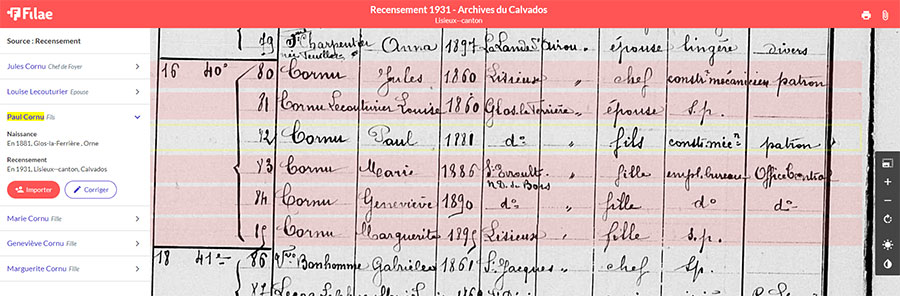 Filae
Recensement 1931 - Archives du Calvados
Lisieux--canton
Source : Recensement
Jules Cornu Chef de Foyer
Louise Lecouturier Epouse
Paul Cornu Fils
Naissance
En 1881, Glos-la-Ferrière , Orne
Recensement
En 1931, Lisieux--canton, Calvados
Importer
Corriger
Marie Cornu Fille
Geneviève Cornu Fille
Marguerite Cornu Fille
79 Charpentier Anna 1897 épouse lingère divers
16 40e 80 Cornu Jules 1860 Lisieux " chef constr. mécanicien patron
81 Cornu Lecouturier Louise 1860 Glos la Ferrière " épouse s.p.
82 Cornu Paul 1881 do " fils constr. mécn patron
83 Cornu Marie 1886 St Evroult N.D. du Bois " fille empl. bureau Office Central
84 Cornu Geneviève 1890 do " fille do do
85 Cornu Marguerite 1895 Lisieux " fille s.p.
18 41e 86 Vve Bonhomme Gabrielle 1861 St Jacques " chef s.p.
87